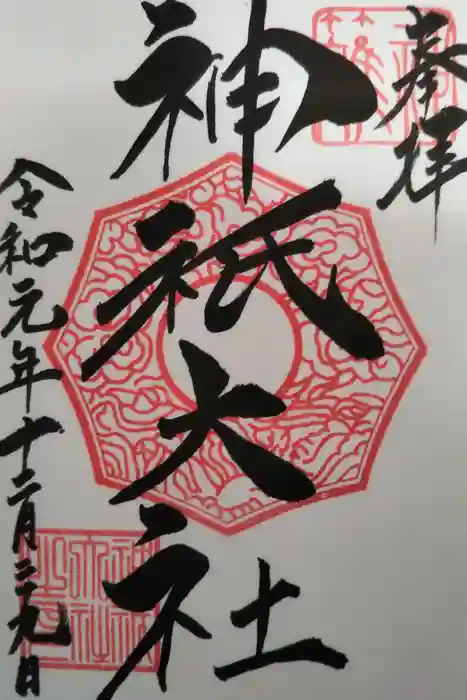 奉拝
神祇大社
令和元年十二月二十九日